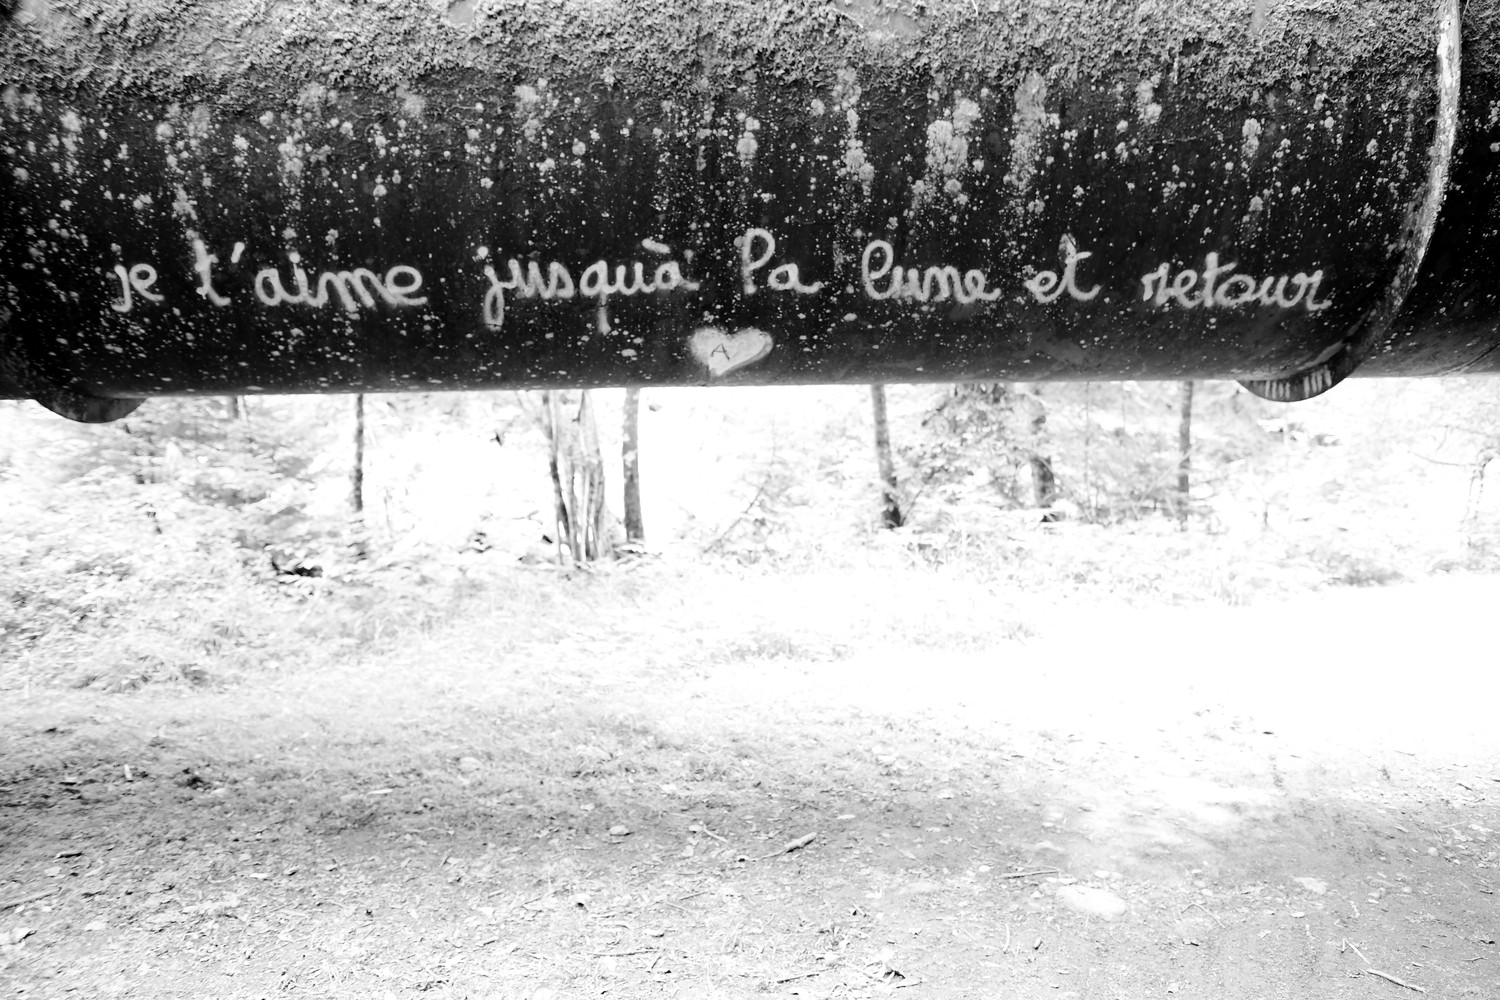 je t'aime jusquà la lune et retour
A